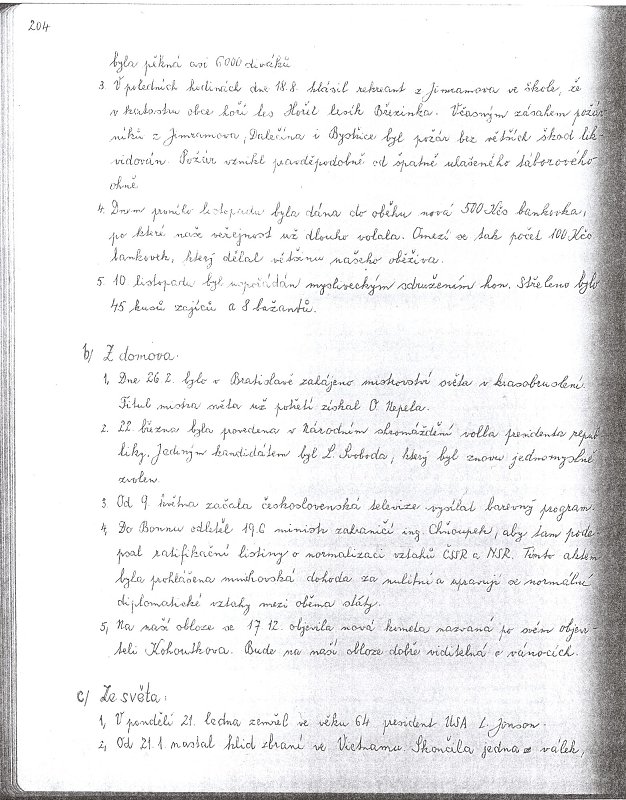 204
byla pěkná asi 6000 diváků
3. V poledních hodinách dne 18.8. hlásil rekreant z Jimramova ve škole, že
v katastru obce hoří les Hořel lesík Březinka. Včasným zásahem požár
níků z Jimramova, Dalečína i Bystřice byl požár bez větších škod lik
vidován. Požár vznikl pravděpodobně od špatně uhašeného táborového
ohně.
4. Dnem prvního listopadu byla dána do oběhu nová 500 Kčs bankovka,
po které naše veřejnost už dlouho volala. Omezí se tak počet 100 Kčs
bankovek, který dělal většinu našeho oběživa.
5. 10 listopadu byl uspořádán mysliveckým sdružením hon. Střeleno bylo
45 kusů zajíců a 8 bažantů.
b/ Z domova.
1, Dne 26 2. bylo v Bratislavě zahájeno mistrovství světa v krasobruslení.
Titul mistra světa už potřetí získal O. Nepela.
2. 22. března byla provedena v Národním shromáždění volba presidenta repub
liky. Jediným kandidátem byl L. Svoboda, který byl znovu jednomyslně
zvolen
3. Od 9 května začala československá televize vysílat barevný program.
4, Do Bonnu odletěl 19.6 ministr zahraničí ing. Chňoupek, aby tam pode
psal ratifikační listiny o normalizaci vztahů ČSSR a NSR. Tímto aktem
byla prohlášena mnichovská dohoda za nulitní a upravují se normální
diplomatické vztahy mezi oběma státy.
5, Na naší obloze se 17.12. objevila nová kometa nazvaná po svém objevi
teli Kohoutkova. Bude na naší obloze dobře viditelná o vánocích.
c/ Ze světa:
1, V pondělí 21. ledna zemřel ve věku 64 president USA L. Jonson.
2, Od 21.1. nastal klid zbraní ve Vietnamu. Skončila jedna z válek,